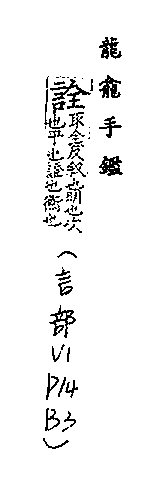 龍龕手鑑
詮
取全反叙也明也次
也平也證也衡也
（言部V1
P14
B3）